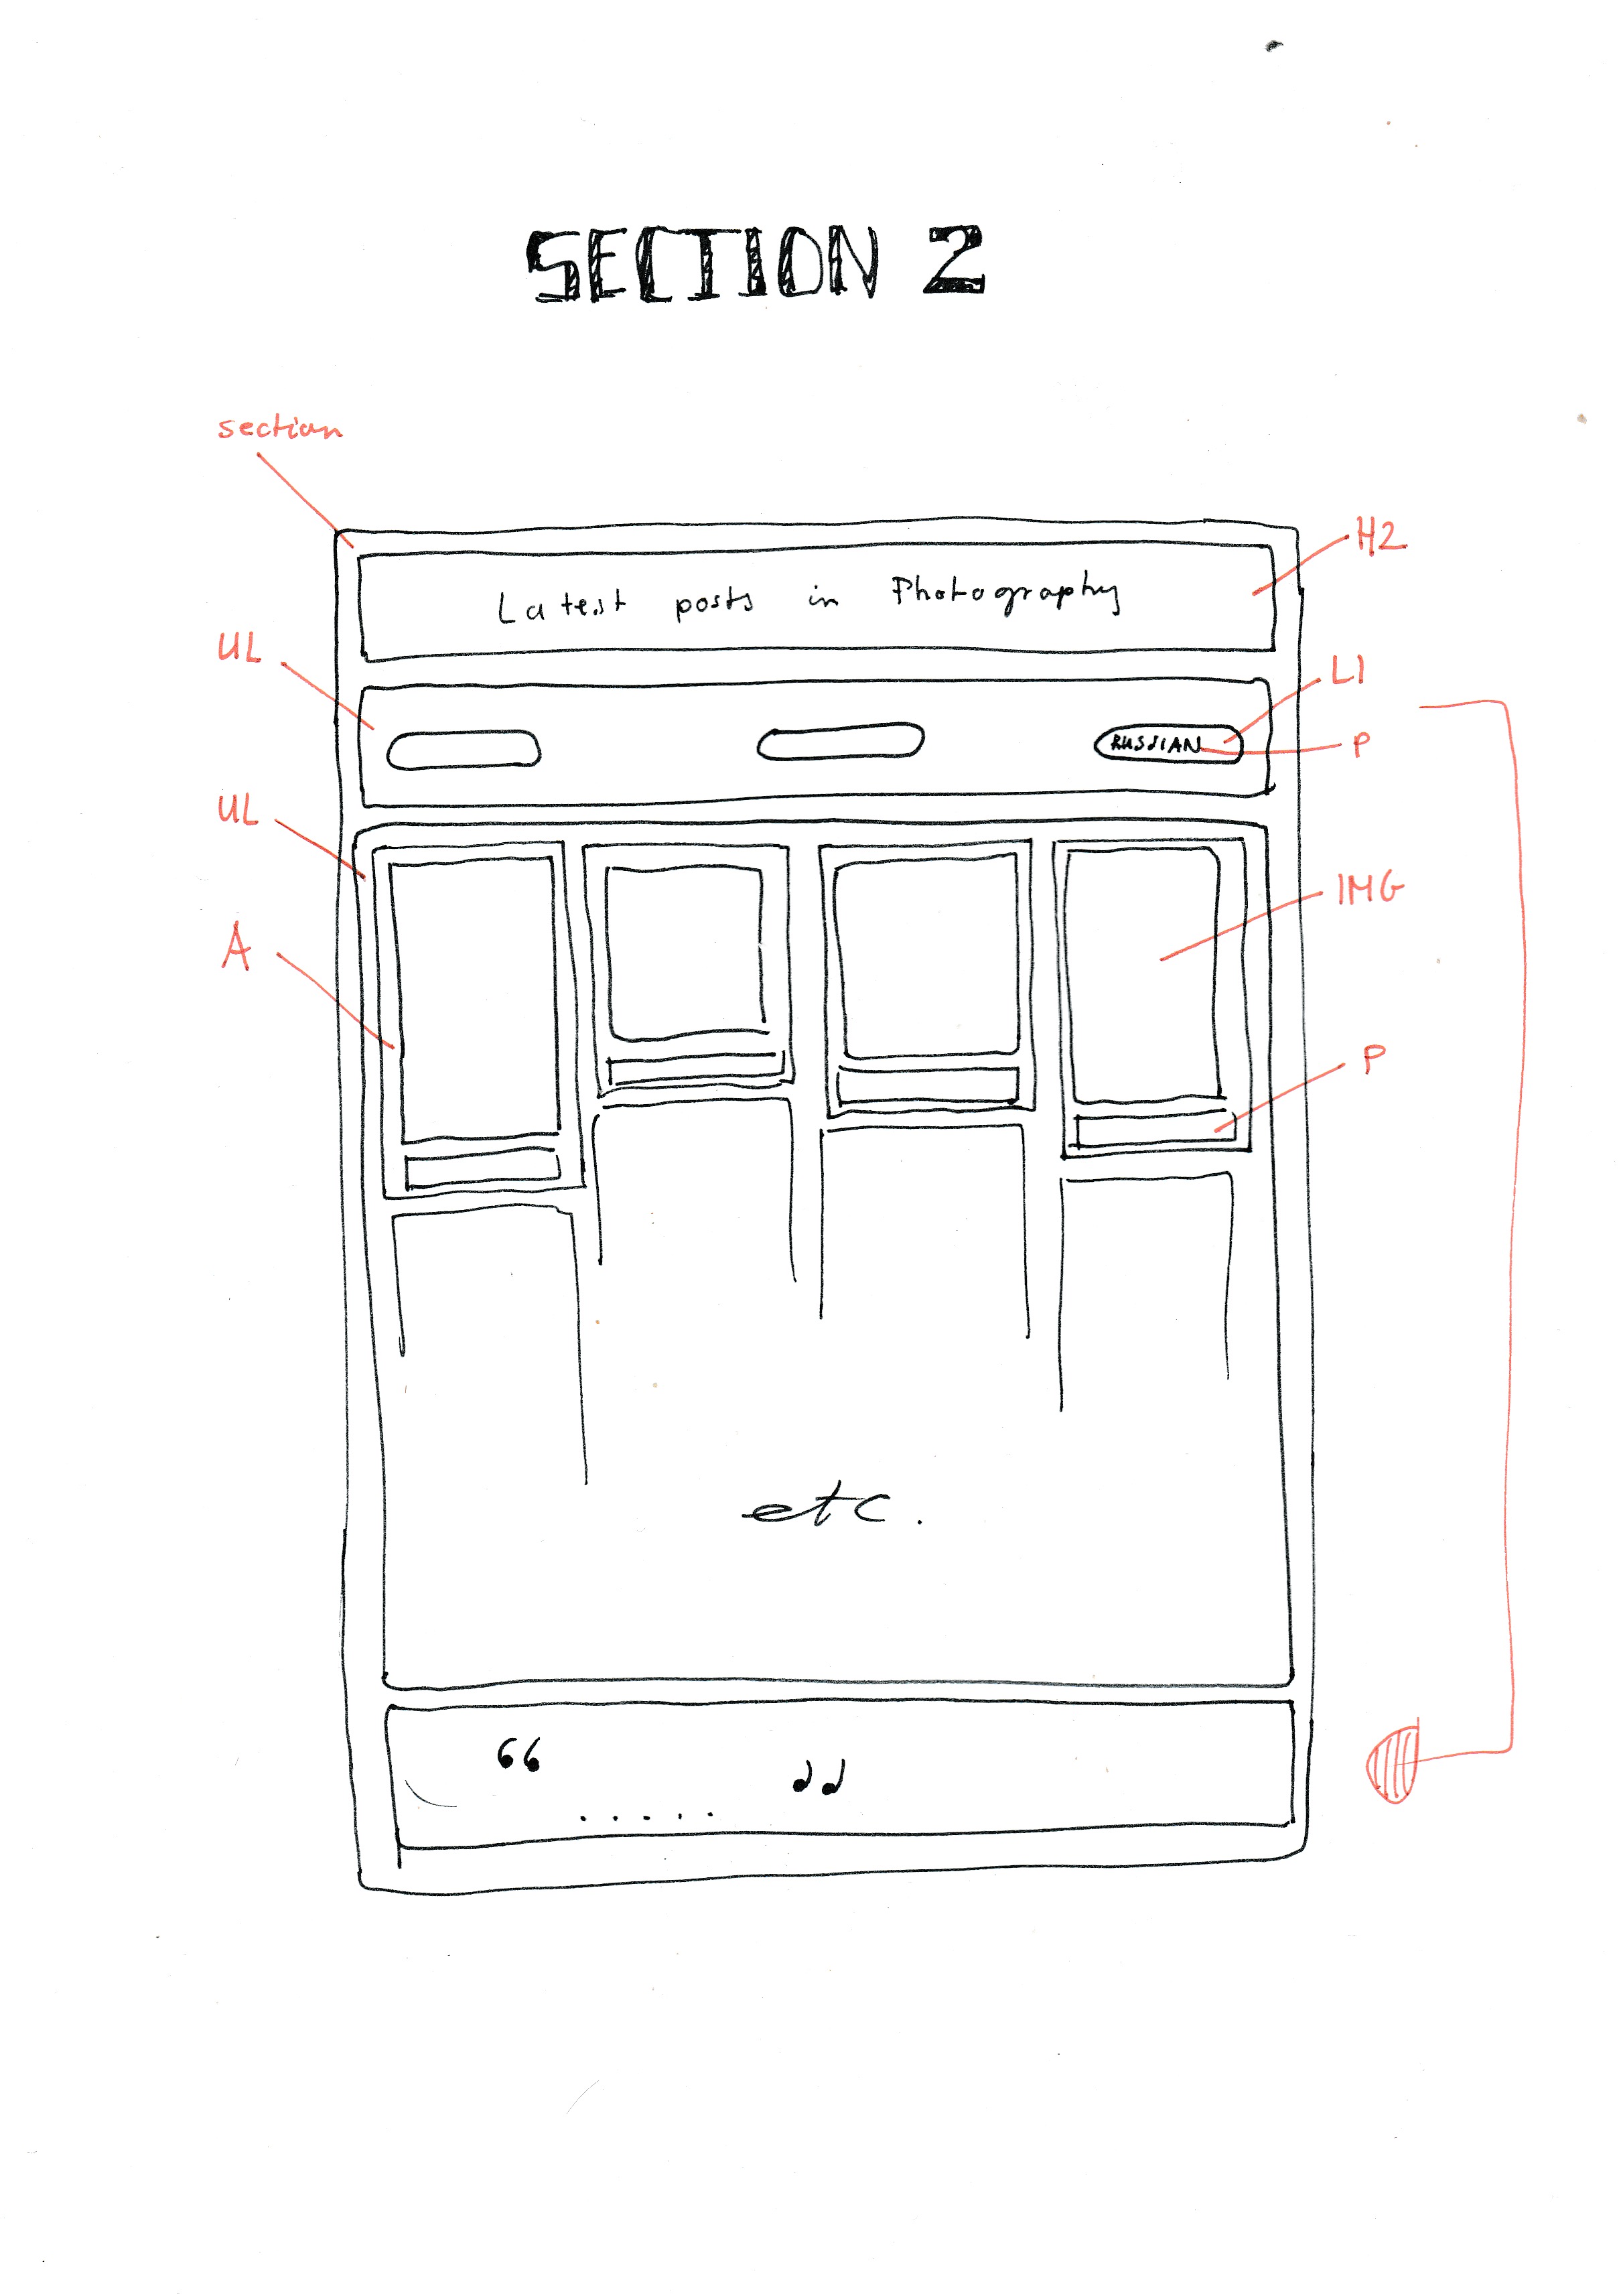 SECTION 2
section
H2
Latest posts in Photography
UL
LI
RUSSIAN
P
UL
IMG
A
P
etc.
“ ”
. . . . .